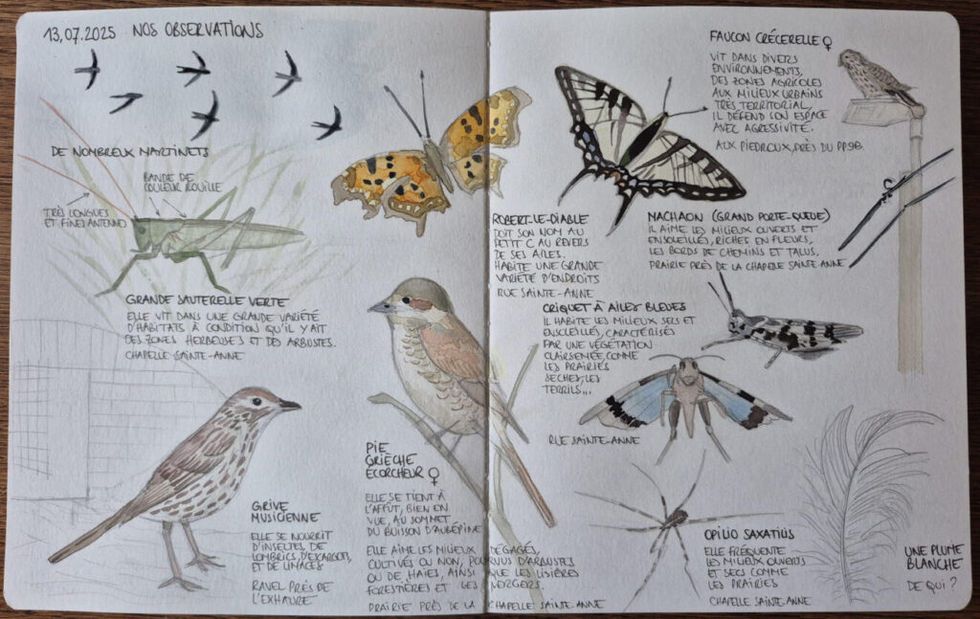 13,07.2025 NOS OBSERVATIONS
DE NOMBREUX MARTINETS
BANDE DE
COULEUR ROUILLE
TRÈS LONGUES
ET FINES ANTENNES
GRANDE SAUTERELLE VERTE
ELLE VIT DANS UNE GRANDE VARIÉTÉ
D'HABITATS À CONDITION QU'IL Y AIT
DES ZONES HERBEUSES ET DES ARBUSTES.
CHAPELLE SAINTE-ANNE
GRIVE
MUSICIENNE
ELLE SE NOURRIT
D'INSECTES, DE
LOMBRICS, D'ESCARGOTS,
ET DE LIMACES
RAVEL PRÈS DE
L'EXHAURE
PIE
GRIÈCHE
ÉCORCHEUR ♀
ELLE SE TIENT À
L'AFFÛT, BIEN EN
VUE, AU SOMMET
DU BUISSON D'AUBÉPINE
ELLE AIME LES MILIEUX DÉGAGÉS,
CULTIVÉS OU NON, POURVUS D'ARBUSTES
OU DE HAIES, AINSI QUE LES LISIÈRES
FORESTIÈRES ET LES VERGERS.
PRAIRIE PRÈS DE LA CHAPELLE SAINTE-ANNE
ROBERT-LE-DIABLE
DOIT SON NOM AU
PETIT C AU REVERS
DE SES AILES.
HABITE UNE GRANDE
VARIÉTÉ D'ENDROITS
RUE SAINTE-ANNE
MACHAON (GRAND PORTE-QUEUE)
IL AIME LES MILIEUX OUVERTS ET
ENSOLEILLÉS, RICHES EN FLEURS,
LES BORDS DE CHEMINS ET TALUS,
PRAIRIE PRÈS DE LA CHAPELLE SAINTE-ANNE
FAUCON CRÉCERELLE ♀
VIT DANS DIVERS
ENVIRONNEMENTS,
DES ZONES AGRICOLES
AUX MILIEUX URBAINS
TRÈS TERRITORIAL,
IL DÉFEND SON ESPACE
AVEC AGRESSIVITÉ.
AUX PIEDROUX, PRÈS DU PP9B
CRIQUET À AILES BLEUES
IL HABITE LES MILIEUX SECS ET
ENSOLEILLÉS, CARACTÉRISÉS
PAR UNE VÉGÉTATION
CLAIRSEMÉE, COMME
LES PRAIRIES
SÈCHES, LES
TERRILS...
RUE SAINTE-ANNE
OPILIO SAXATILIS
ELLE FRÉQUENTE
LES MILIEUX OUVERTS
ET SECS COMME
LES PRAIRIES
CHAPELLE SAINTE-ANNE
UNE PLUME
BLANCHE
DE QUI ?